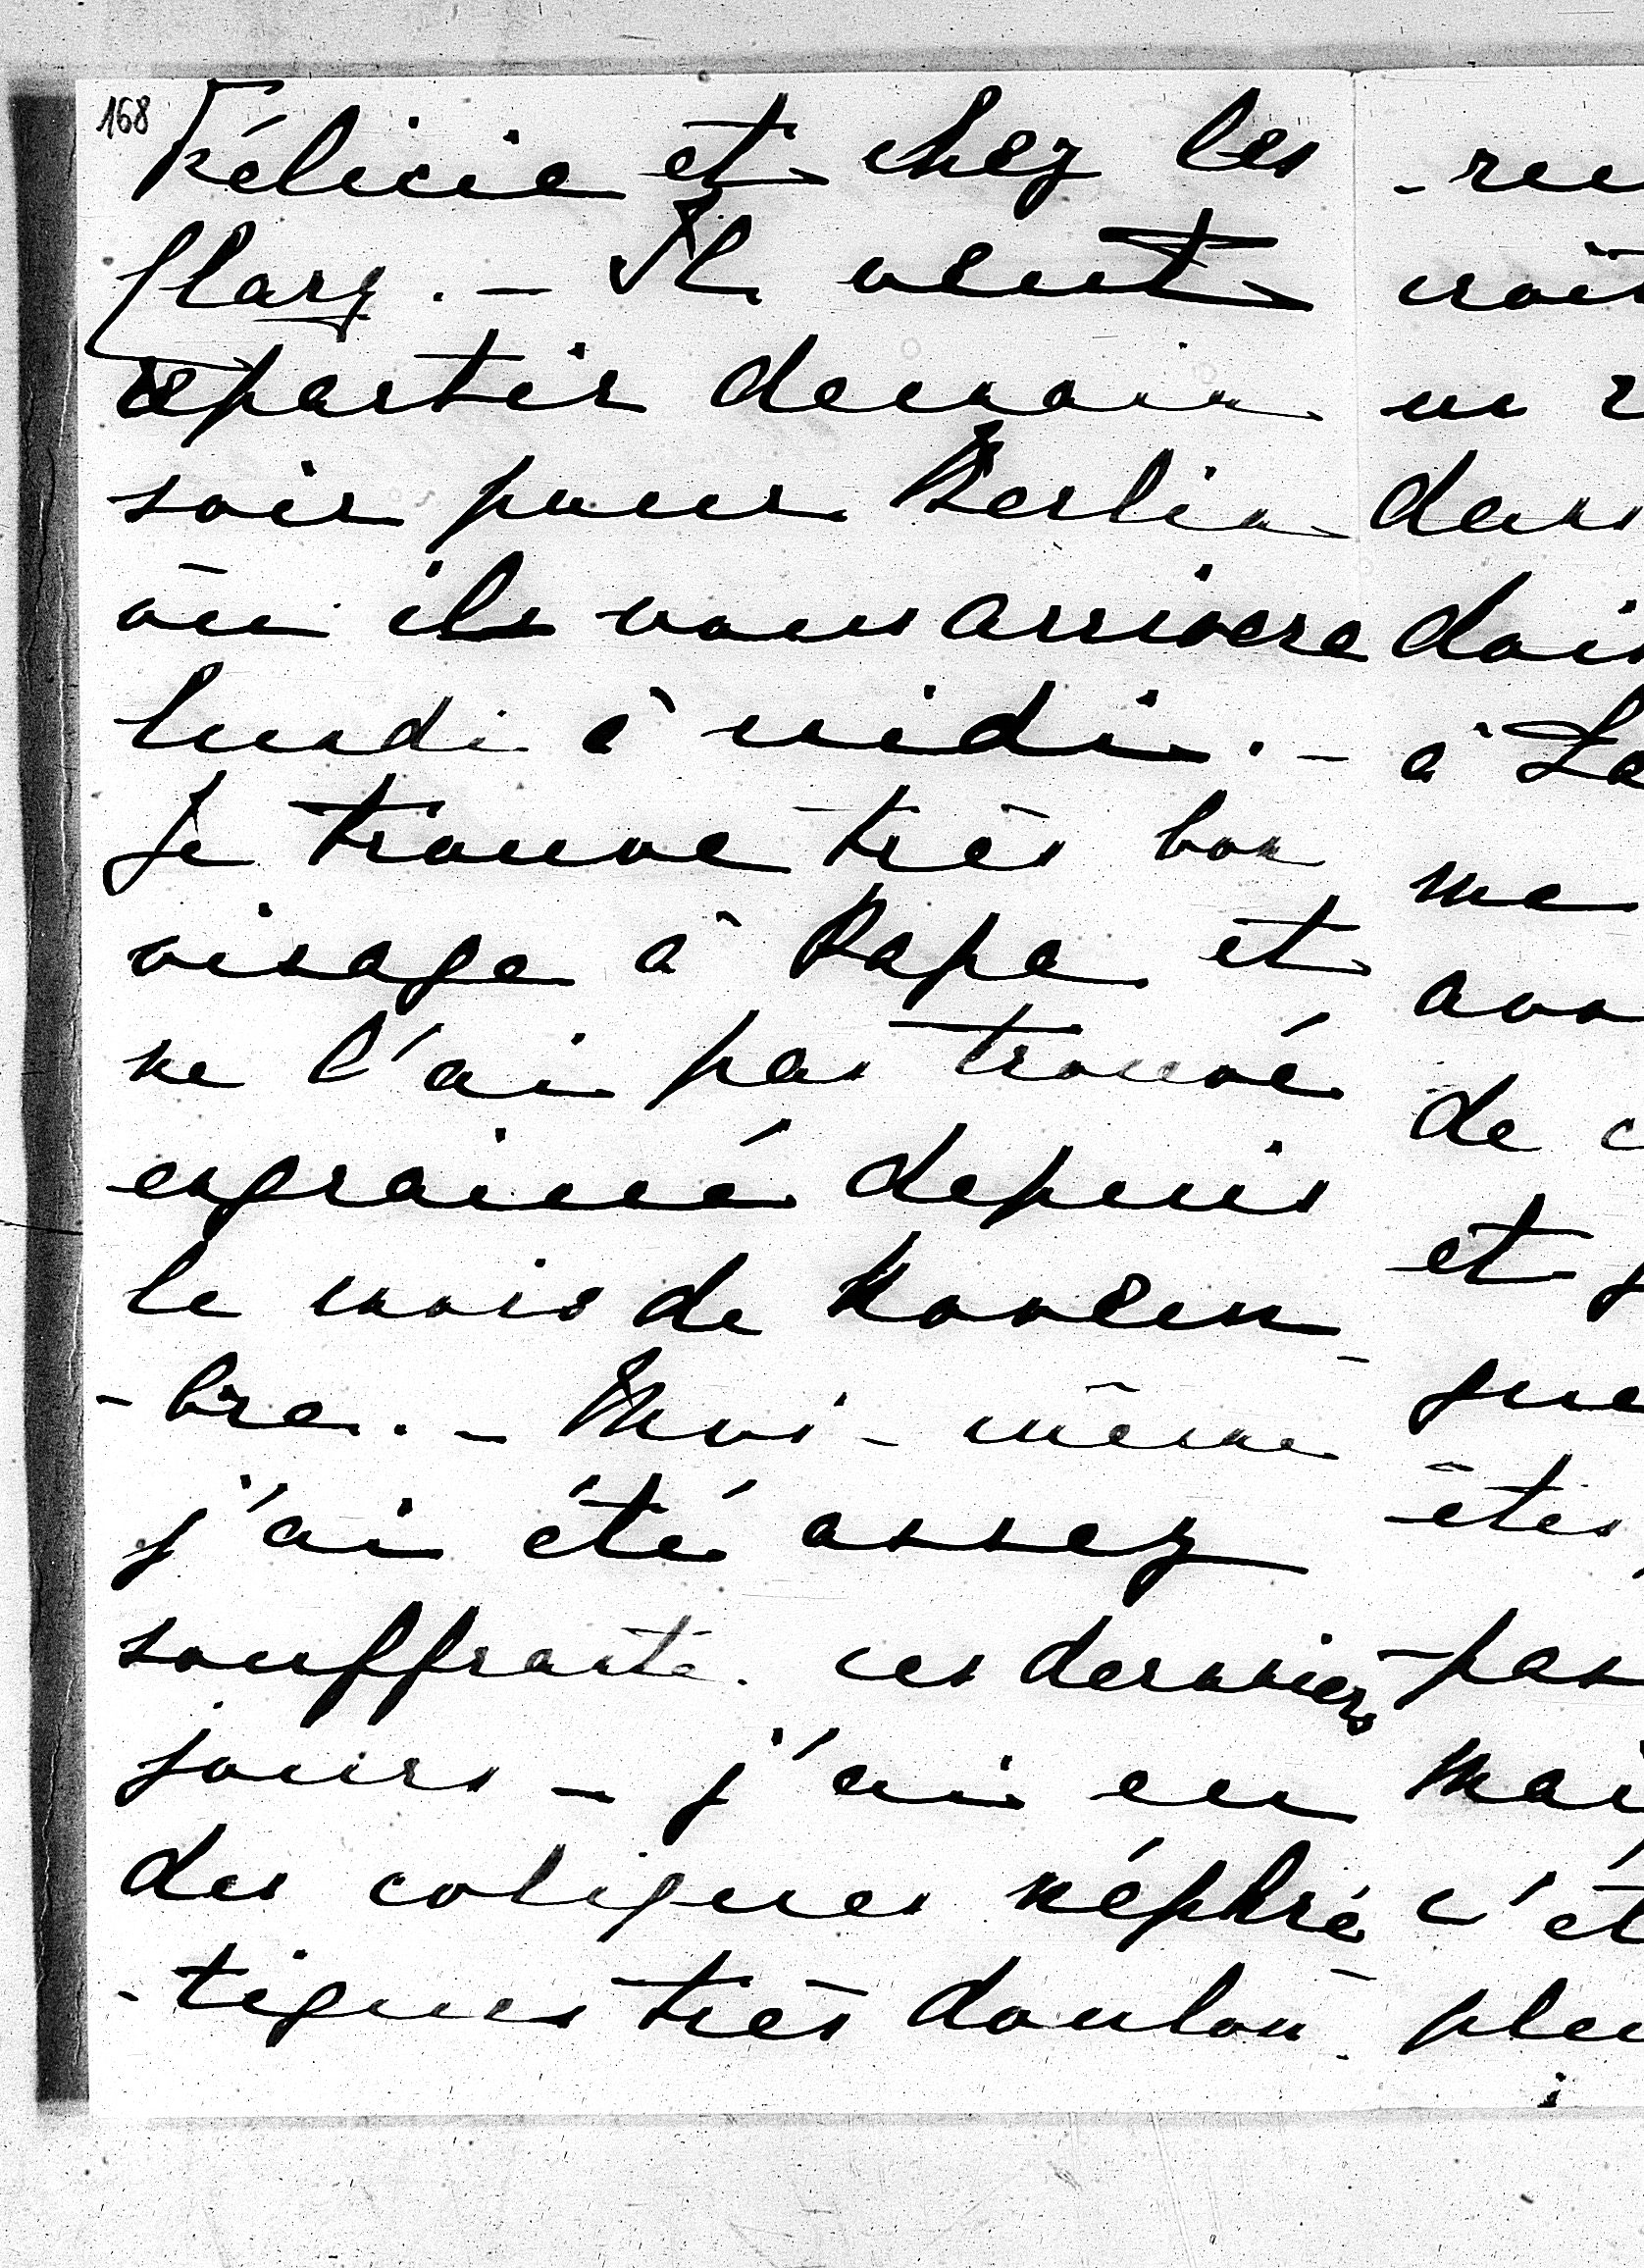 168
Félicie et chez les
Clary. — Il veut
repartir demain
soir pour Berlin
où il vous arrivera
lundi à midi. —
Je trouve très bon
visage à Papa et
ne l'ai pas trouvé
engraissé depuis
le mois de Novem
- bre. — Moi - même
j'ai été assez
souffrante ces derniers
jours — j'ai eu
des coliques néphré
- tiques très doulou -
à
me
de
et
êtes
pas
c'